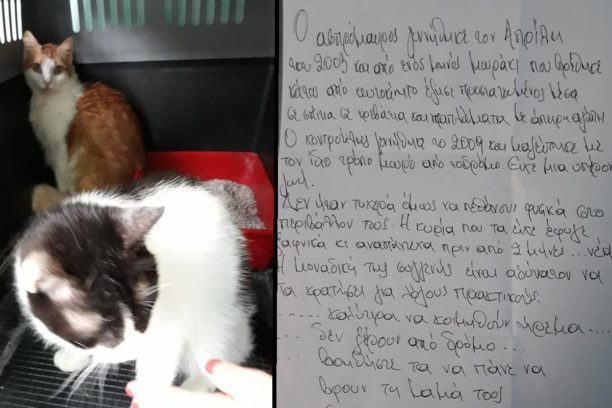 Ο ασπρόμαυρος γεννήθηκε τον Απρίλη
του 2009 και από ενός μηνός μωράκι που βρέθηκε
κάτω από αυτοκίνητο έζησε προστατευμένος μέσα
σε σπίτια σε κρεβάτια και παπλώματα με άπειρη αγάπη.
Ο κοντρούλης γεννήθηκε το 2009 και μαζεύτηκε με
τον ίδιο τρόπο μωρό από το δρόμο. Είχε μια υπέροχη
ζωή.
Δεν ήταν τυχερά όμως να πεθάνουν φυσικά στο
περιβάλλον τους. Η κυρία που τα είχε έφυγε
ξαφνικά κι αναπάντεχα πριν από 2 μήνες ... νέα
Η μοναδική της συγγενής είναι αδύνατον να
τα κρατήσει για λόγους πρακτικούς.
...... καλύτερα να κοιμηθούν ήρεμα ....
... δεν ξέρουν από δρόμο ....
βοηθήστε τα να πάνε να
βρουν τη μαμά τους